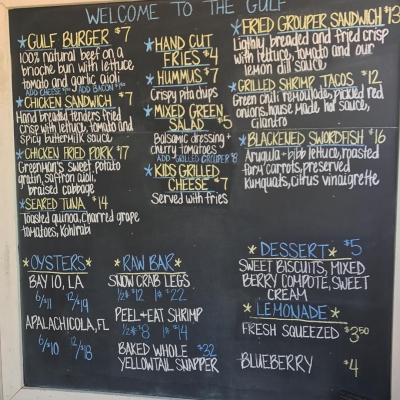 WELCOME TO THE GULF
GULF BURGER $7
100% natural beef on a
brioche bun with lettuce
tomato and garlic aioli
ADD CHEESE ADD BACON
CHICKEN SANDWICH $7
Hand breaded tenders fried
crisp with lettuce, tomato and
spicy buttermilk sauce
CHICKEN FRIED PORK $7
Greenman's sweet potato
gratin, saffron aioli,
braised cabbage
SEARED TUNA $14
Toasted quinoa, charred grape
tomatoes, kohlrabi
HAND CUT
FRIES $4
HUMMUS $7
Crispy pita chips
MIXED GREEN
SALAD $5
Balsamic dressing +
cherry tomatoes
ADD GRILLED GROUPER $8
KIDS GRILLED
CHEESE $7
Served with fries
FRIED GROUPER SANDWICH $13
Lightly breaded and fried crisp
with lettuce, tomato and our
lemon dill sauce
GRILLED SHRIMP TACOS $12
Green chili remoulade, pickled red
onions, house made hot sauce,
cilantro
BLACKENED SWORDFISH $16
Arugula + bibb lettuce, roasted
baby carrots, preserved
kumquats, citrus vinaigrette
OYSTERS
BAY 10, LA
6/$11 12/$19
APALACHICOLA, FL
6/$10 12/$18
RAW BAR
SNOW CRAB LEGS
1/2# $12 1# $22
PEEL + EAT SHRIMP
1/2# $8 1# $14
BAKED WHOLE $32
YELLOWTAIL SNAPPER
DESSERT $5
SWEET BISCUITS, MIXED
BERRY COMPOTE, SWEET
CREAM
LEMONADE
FRESH SQUEEZED $3.50
BLUEBERRY $4